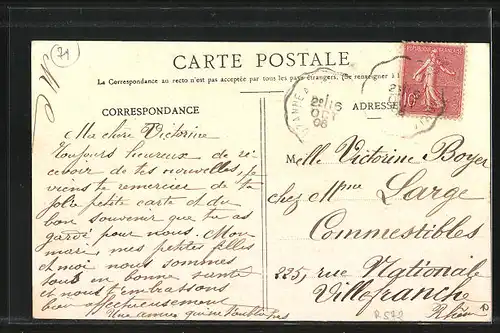 71
CARTE POSTALE
La Correspondance au recto n'est pas acceptée par tous les pays étrangers. (Se renseigner à l
CORRESPONDANCE
ADRESSE
REPUBLIQUE FRANÇAISE
10
16
OCT
06
Ma chère Victorine
Toujours heureux de re-
cevoir de tes nouvelles, je
viens te remercier de ta
jolie petite carte et du
bon souvenir que tu as
gardé pour nous. Mon
mari, mes petites filles
et moi nous sommes
tous en bonne santé
et nous t'embrassons
bien affectueusement
Une amie qui ne t'oublie pas
Melle Victorine Boyer
chez Mme Large
Commestibles
225, rue Nationale
Villefranche
Rhône
R572